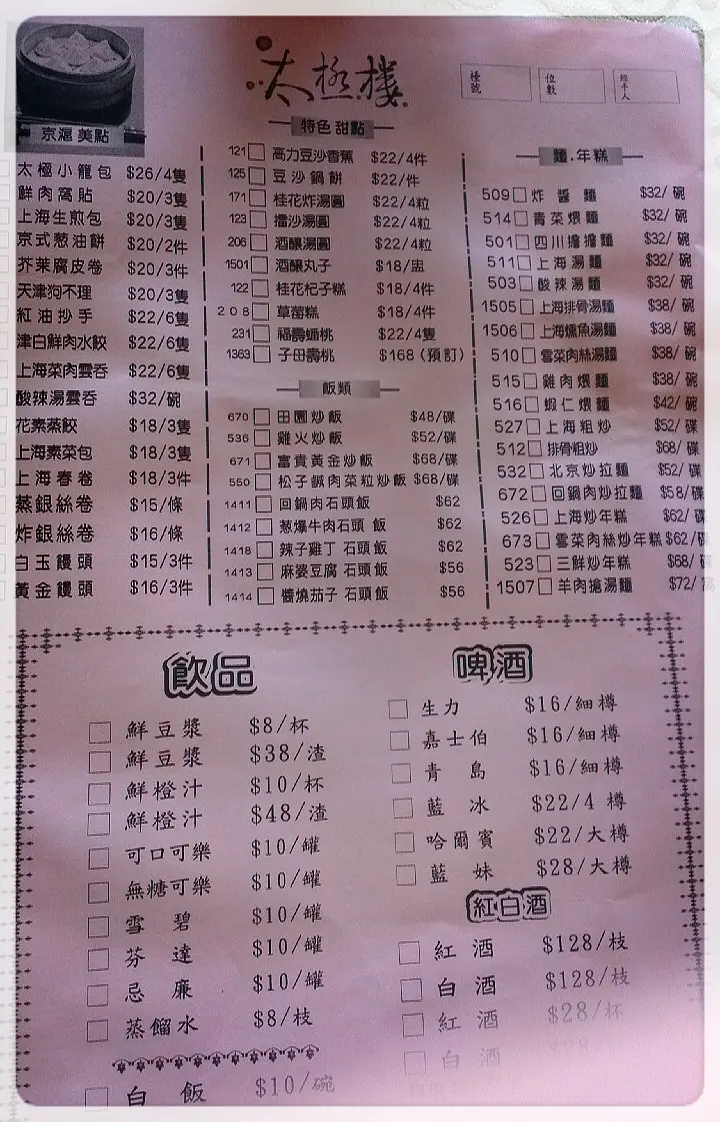 太極樓
檯號
位數
經手人
京滬美點
太極小籠包 $26/4隻
鮮肉窩貼 $20/3隻
上海生煎包 $20/3隻
京式葱油餅 $20/2件
芥菜腐皮卷 $20/3件
天津狗不理 $20/3隻
紅油抄手 $22/6隻
津白鮮肉水餃 $22/6隻
上海菜肉雲吞 $22/6隻
酸辣湯雲吞 $32/碗
花素蒸餃 $18/3隻
上海素菜包 $18/3隻
上海春卷 $18/3件
蒸銀絲卷 $15/條
炸銀絲卷 $16/條
白玉饅頭 $15/3件
黃金饅頭 $16/3件
特色甜點
121 高力豆沙香蕉 $22/4件
125 豆沙鍋餅 $22/件
171 桂花炸湯圓 $22/4粒
123 擂沙湯圓 $22/4粒
206 酒釀湯圓 $22/4粒
1501 酒釀丸子 $18/盅
122 桂花杞子糕 $18/4件
208 草莓糕 $18/4件
231 福壽蟠桃 $22/4隻
1363 子母壽桃 $168(預訂)
飯類
670 田園炒飯 $48/碟
536 雞火炒飯 $52/碟
671 富貴黃金炒飯 $68/碟
550 松子鹹肉菜粒炒飯 $68/碟
1411 回鍋肉石頭飯 $62
1412 葱爆牛肉石頭飯 $62
1418 辣子雞丁石頭飯 $62
1413 麻婆豆腐石頭飯 $56
1414 醬燒茄子石頭飯 $56
麵.年糕
509 炸醬麵 $32/碗
514 青菜煨麵 $32/碗
501 四川擔擔麵 $32/碗
511 上海湯麵 $32/碗
503 酸辣湯麵 $32/碗
1505 上海排骨湯麵 $38/碗
1506 上海燻魚湯麵 $38/碗
510 雪菜肉絲湯麵 $38/碗
515 雞肉煨麵 $38/碗
516 蝦仁煨麵 $42/碗
527 上海粗炒 $52/碟
512 排骨粗炒 $68/碟
532 北京炒拉麵 $52/碟
672 回鍋肉炒拉麵 $58/碟
526 上海炒年糕 $62/碟
673 雪菜肉絲炒年糕 $62/碟
523 三鮮炒年糕 $68/
1507 羊肉搶湯麵 $72/
飲品
鮮豆漿 $8/杯
鮮豆漿 $38/渣
鮮橙汁 $10/杯
鮮橙汁 $48/渣
可口可樂 $10/罐
無糖可樂 $10/罐
雪碧 $10/罐
芬達 $10/罐
忌廉 $10/罐
蒸餾水 $8/枝
白飯 $10/碗
啤酒
生力 $16/細樽
嘉士伯 $16/細樽
青島 $16/細樽
藍冰 $22/4樽
哈爾賓 $22/大樽
藍妹 $28/大樽
紅白酒
紅酒 $128/枝
白酒 $128/枝
紅酒 $28/杯
白酒